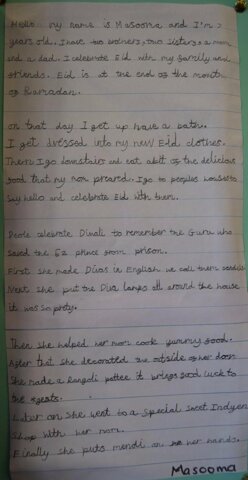 Hello my name is Masooma and I'm 7
years old. I have two brothers, two sisters a mom
and a dad. I celebrate Eid with my family and
friends. Eid is at the end of the month
of Ramadan.
on that day I get up have a bath.
I get dressed into my new Eid clothes.
Then I go downstairs and eat abit of the delicious
food that my mom preard. I go to peoples houses to
Say hello and celebrate Eid with them.
Peole celebrate Diwali to remember the Guru who
saved the 52 prince from prison.
First she made Divos in English we call them
Next she put the Diva lamps all around the house
it was so prety.
Then she helped her mom cook yummy food.
After that she decorated the outside of her door
She made a Rangoli pattee it brings good luck to
the
Later on She went to a Special Sweet Indyen
Shop with her mom.
Finally she puts mendi on her hands.
Masooma